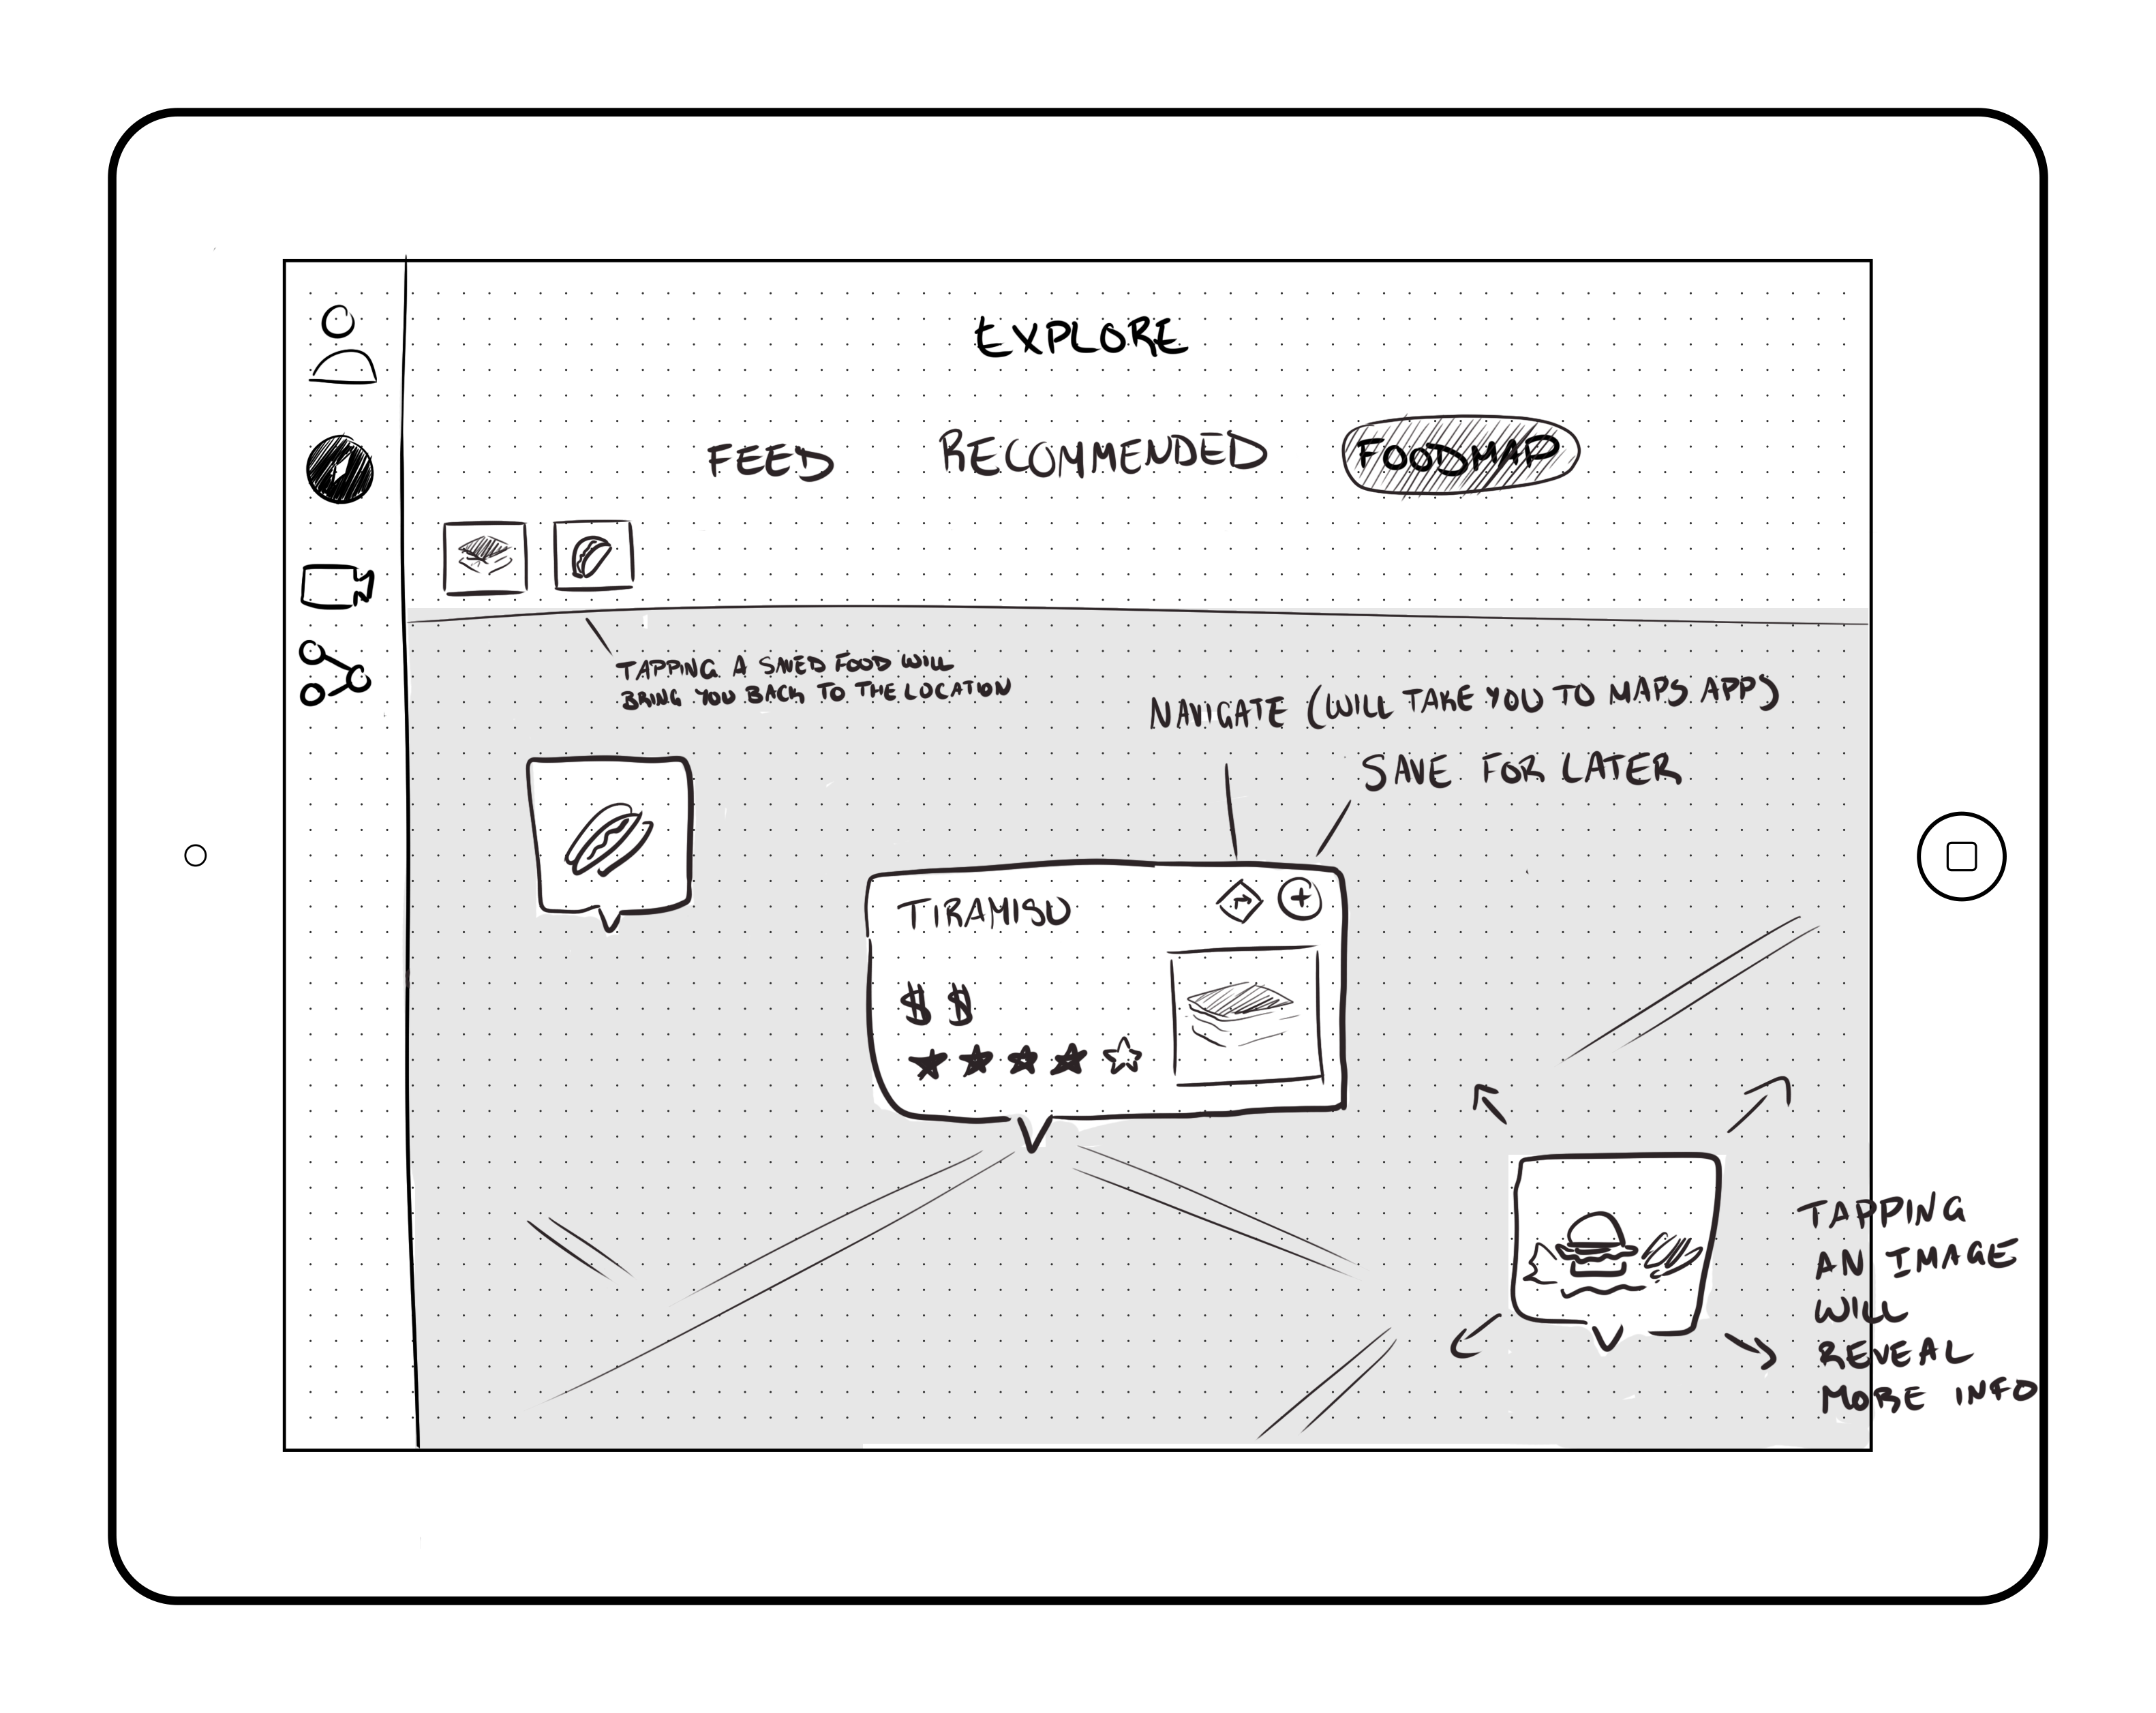 EXPLORE
FEED RECOMMENDED FOODMAP
TAPPING A SAVED FOOD WILL
BRING YOU BACK TO THE LOCATION
NAVIGATE (WILL TAKE YOU TO MAPS APP)
SAVE FOR LATER
TIRAMISU
$ $
TAPPING
AN IMAGE
WILL
REVEAL
MORE INFO